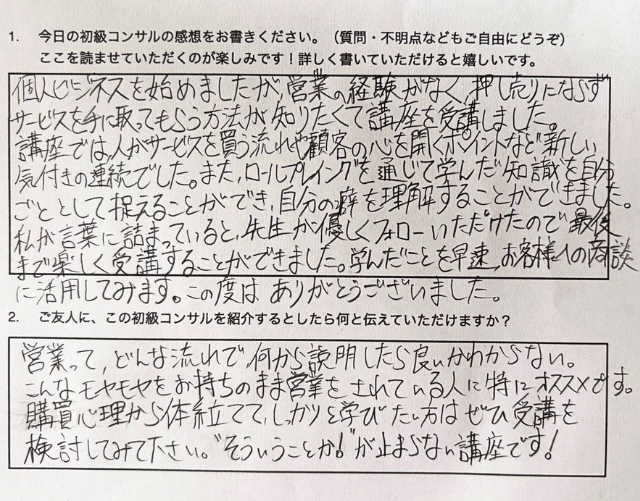 1. 今日の初級コンサルの感想をお書きください。（質問・不明点などもご自由にどうぞ）
ここを読ませていただくのが楽しみです！詳しく書いていただけると嬉しいです。
個人ビジネスを始めましたが、営業の経験がなく押し売りにならず
サービスを手に取ってもらう方法が知りたくて講座を受講しました。
講座では人がサービスを買う流れや顧客の心を開くポイントなど新しい
気付きの連続でした。また、ロールプレイングを通じて学んだ知識を自分
ごととして捉えることができ、自分の癖を理解することができました。
私が言葉に詰まっていると、先生が優しくフォローいただけたので最後
まで楽しく受講することができました。学んだことを早速、お客様への商談
に活用してみます。この度はありがとうございました。
2. ご友人に、この初級コンサルを紹介するとしたら何と伝えていただけますか？
営業って、どんな流れで何から説明したら良いかわからない。
こんなモヤモヤをお持ちのまま営業をされている人に特にオススメです。
購買心理から体系立てて、しっかりと学びたい方はぜひ受講を
検討してみて下さい。"そういうことか！"が止まらない講座です！